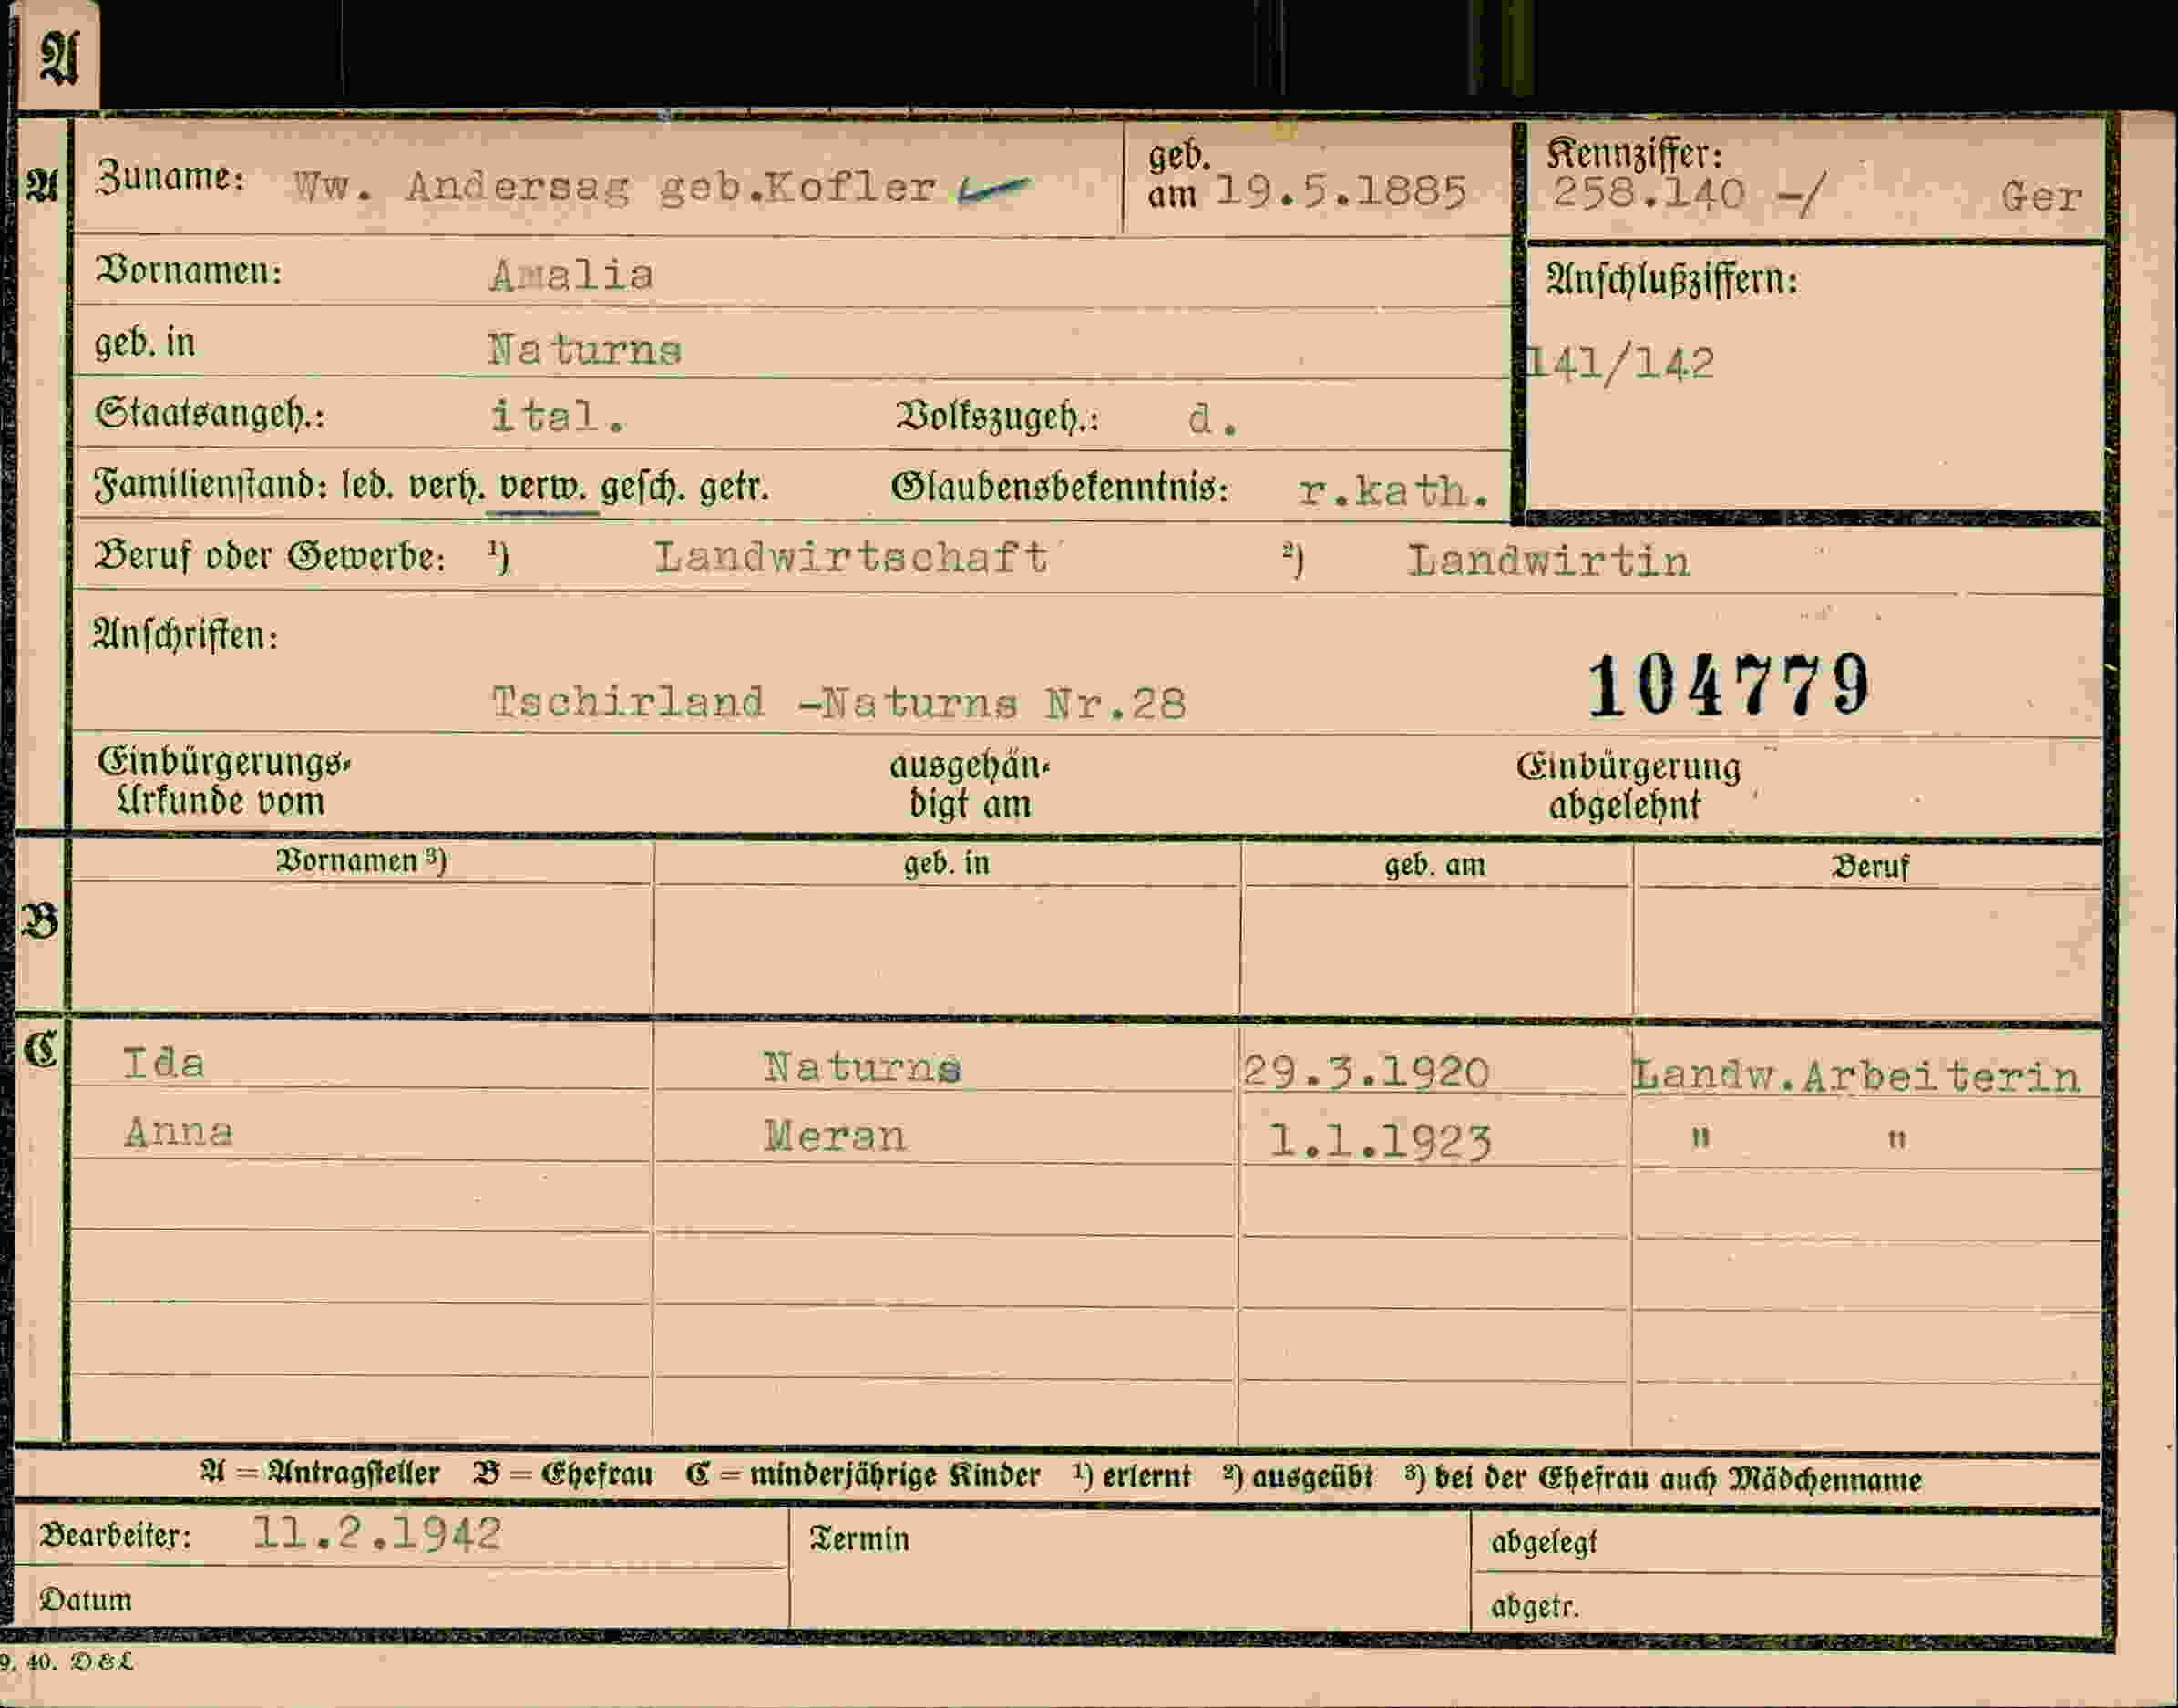 A
A Zuname: Ww. Andersag geb.Kofler geb. am 19.5.1885 Kennziffer: 258.140 -/ Ger
Vornamen: Amalia Anschlußziffern:
geb. in Naturns 141/142
Staatsangeh.: ital. Volkszugeh.: d.
Familienstand: led. verh. verw. gesch. getr. Glaubensbekenntnis: r.kath.
Beruf oder Gewerbe: 1) Landwirtschaft 2) Landwirtin
Anschriften:
Tschirland -Naturns Nr.28 104779
Einbürgerungs- ausgehän- Einbürgerung
Urkunde vom digt am abgelehnt
Vornamen 3) geb. in geb. am Beruf
B
C Ida Naturns 29.3.1920 Landw.Arbeiterin
Anna Meran 1.1.1923 " "
A = Antragsteller B = Ehefrau C = minderjährige Kinder 1) erlernt 2) ausgeübt 3) bei der Ehefrau auch Mädchenname
Bearbeiter: 11.2.1942 Termin abgelegt
Datum abgetr.
9. 40. D & L